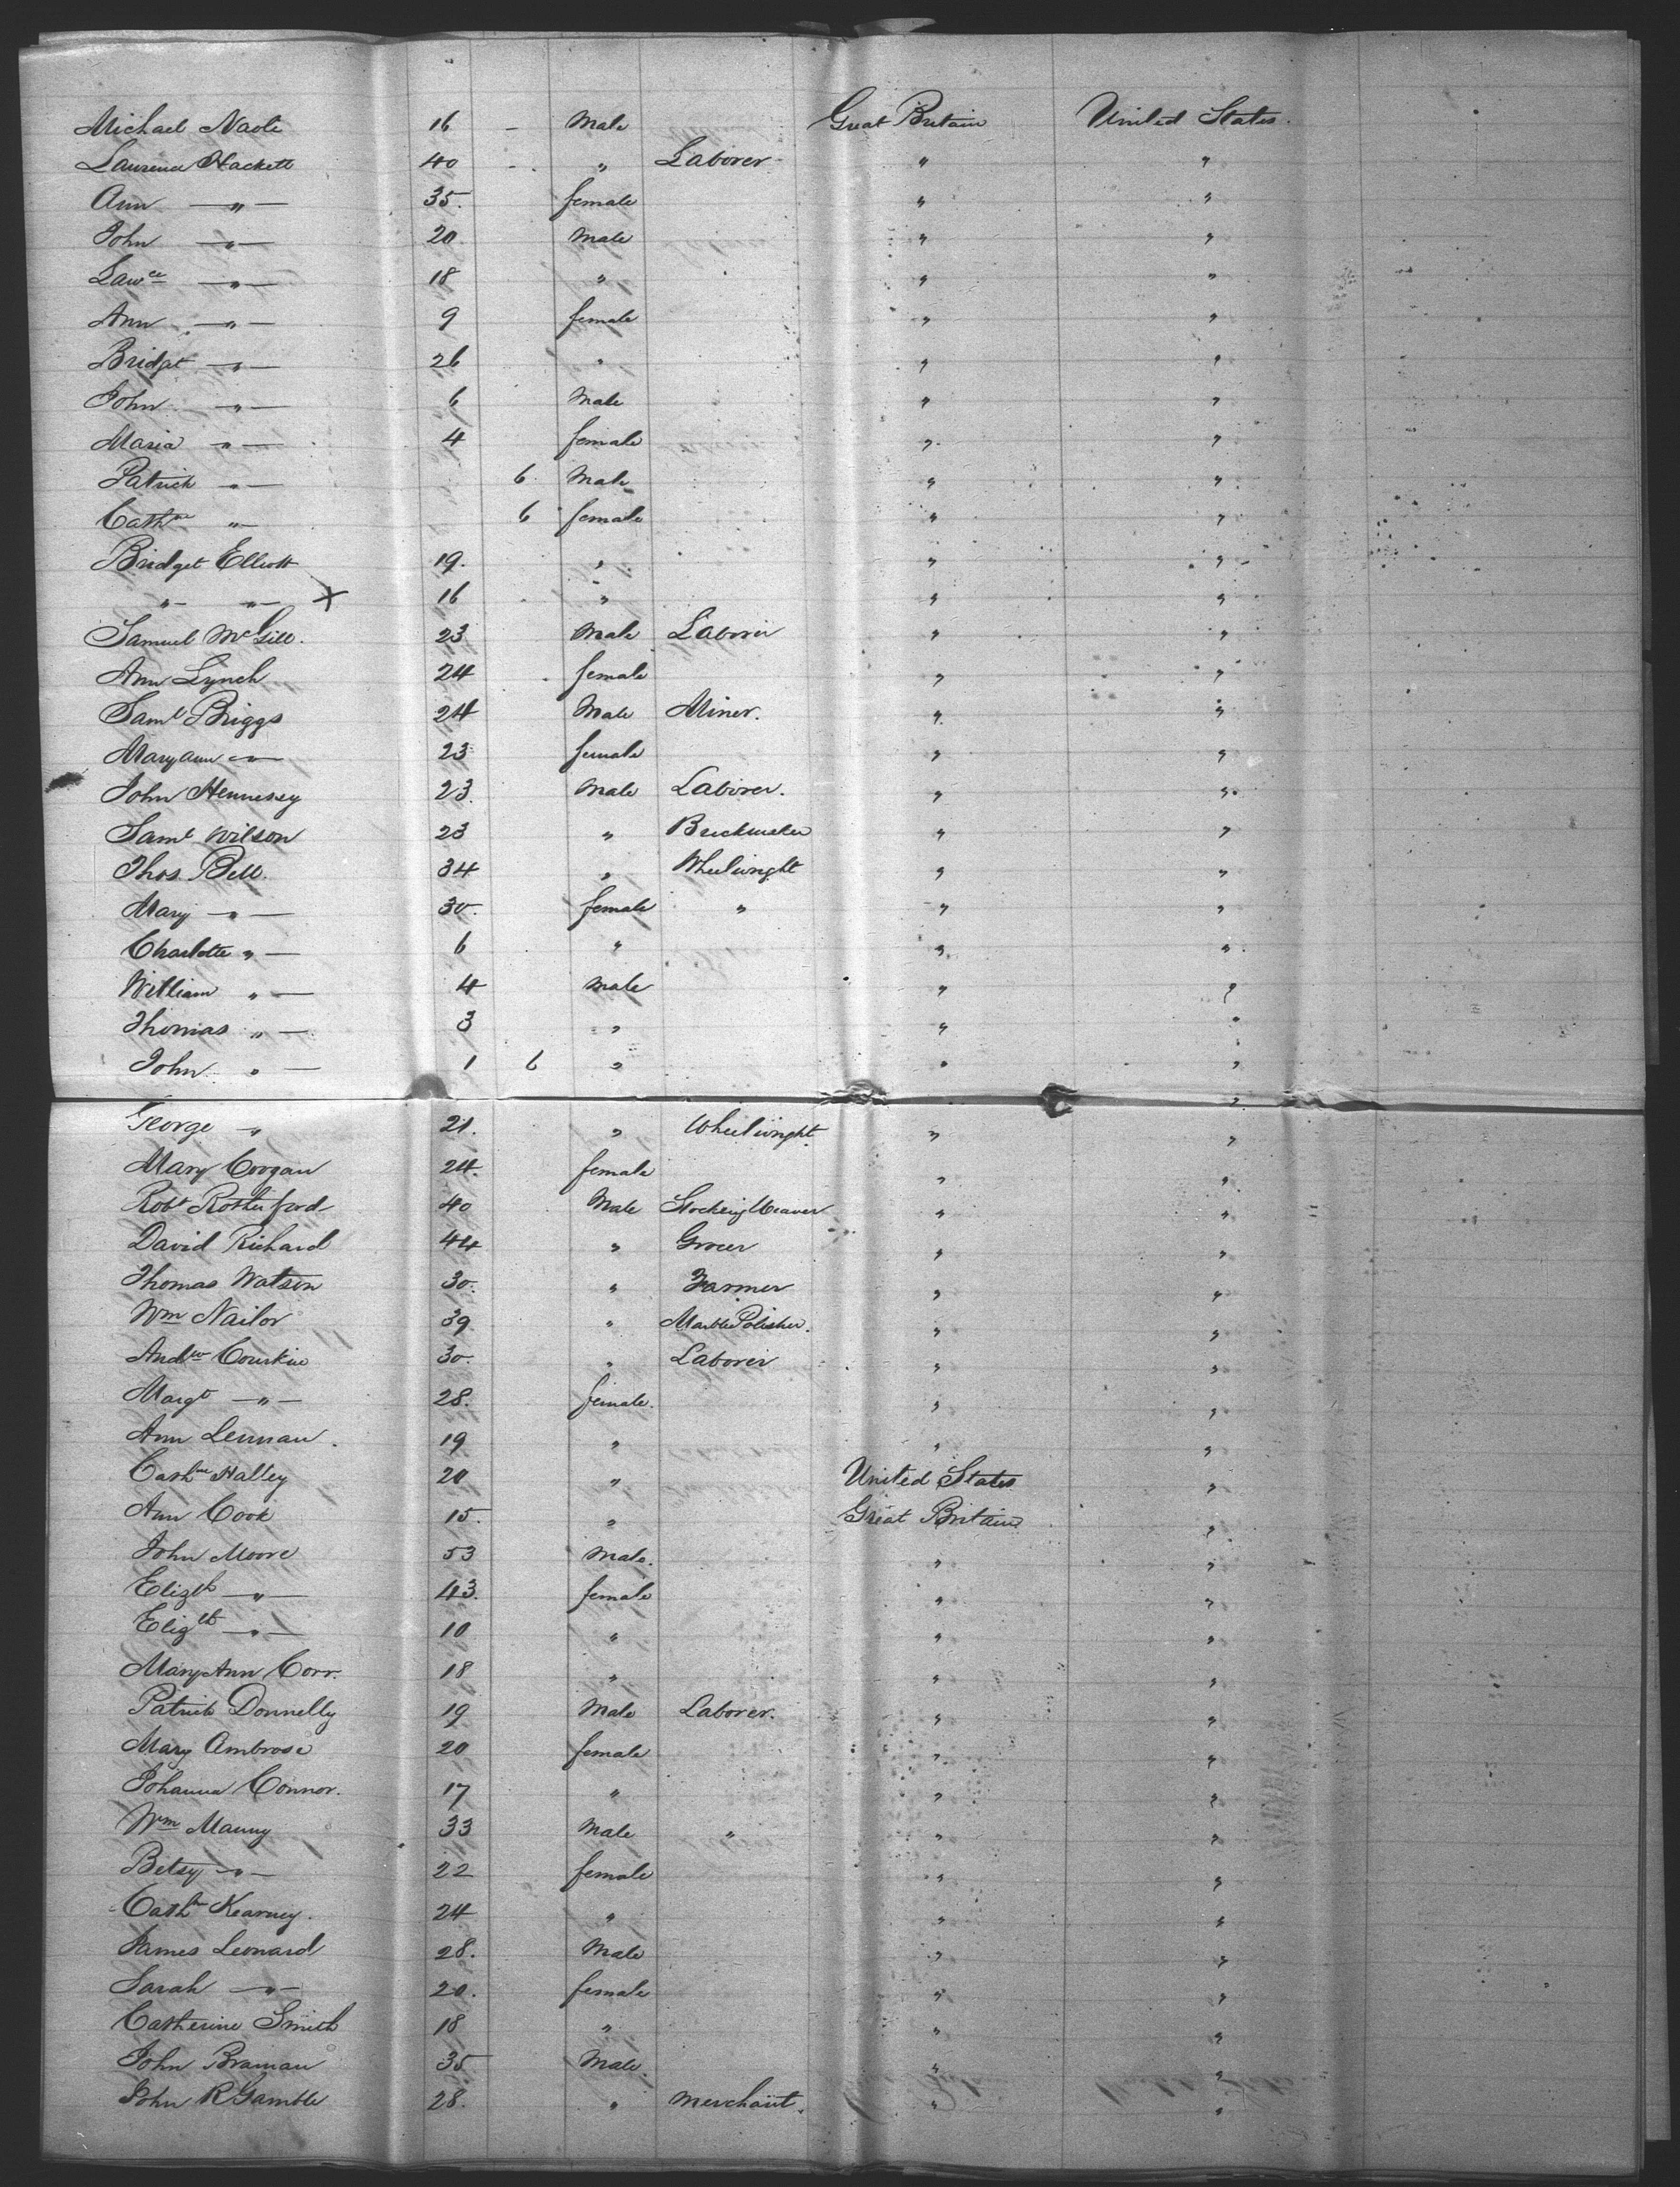 Michael Naole 16 - Male Great Britain United States.
Laurence Hackett 40 - " Laborer " "
Ann —"— 35. female " "
John —"— 20 Male " "
Lawce —"— 18 " " "
Ann —"— 9 female " "
Bridget —"— 26 " " "
John —"— 6 Male " "
Maria —"— 4 female " "
Patrick —"— 6 Male " "
Cathne —"— 6 female " "
Bridget Elliott 19. " " "
"— "— X 16 " " "
Samuel McGill. 23 Male Laborer " "
Ann Lynch 24 female " "
Saml Briggs 24 Male Miner. " "
Maryann —"— 23 female " "
John Hennesey 23. Male Laborer. " "
Saml Wilson 23 " Brickmaker " "
Thos. Bell. 34 " Wheelwright " "
Mary —"— 30. female " " "
Charlotte "— 6 " " "
William "— 4 male " "
Thomas "— 3 " " "
John "— 1 6 " " "
George " 21. " Wheelwright " "
Mary Coogan 24. female " "
Robt Rotherford 40 Male Stocking Weaver " "
David Richard 44 " Grocer " "
Thomas Watson 30. " Farmer " "
Wm Nailor 39 " Marble Polisher. " "
Andw Courskie 30. " Laborer " "
Margt —"— 28. female. " "
Ann Lennan. 19 " " "
Cathne Halley 20 " United States "
Ann Cook 15. " Great Britain "
John Moore 53 Male. " "
Elizth —"— 43. female " "
Elizth —"— 10 " " "
Mary Ann Corr. 18 " " "
Patrick Donnelly 19 Male Laborer. " "
Mary Ambrose 20 female " "
Johanna Connor. 17 " " "
Wm Manny 33 Male " " "
Betsy —"— 22 female " "
Cathn Kearney. 24 " " "
James Leonard 28. Male " "
Sarah —"— 20. female " "
Catherine Smith 18 " " "
John Braman 35 Male. " "
John R Gamble 28. " Merchant. " "